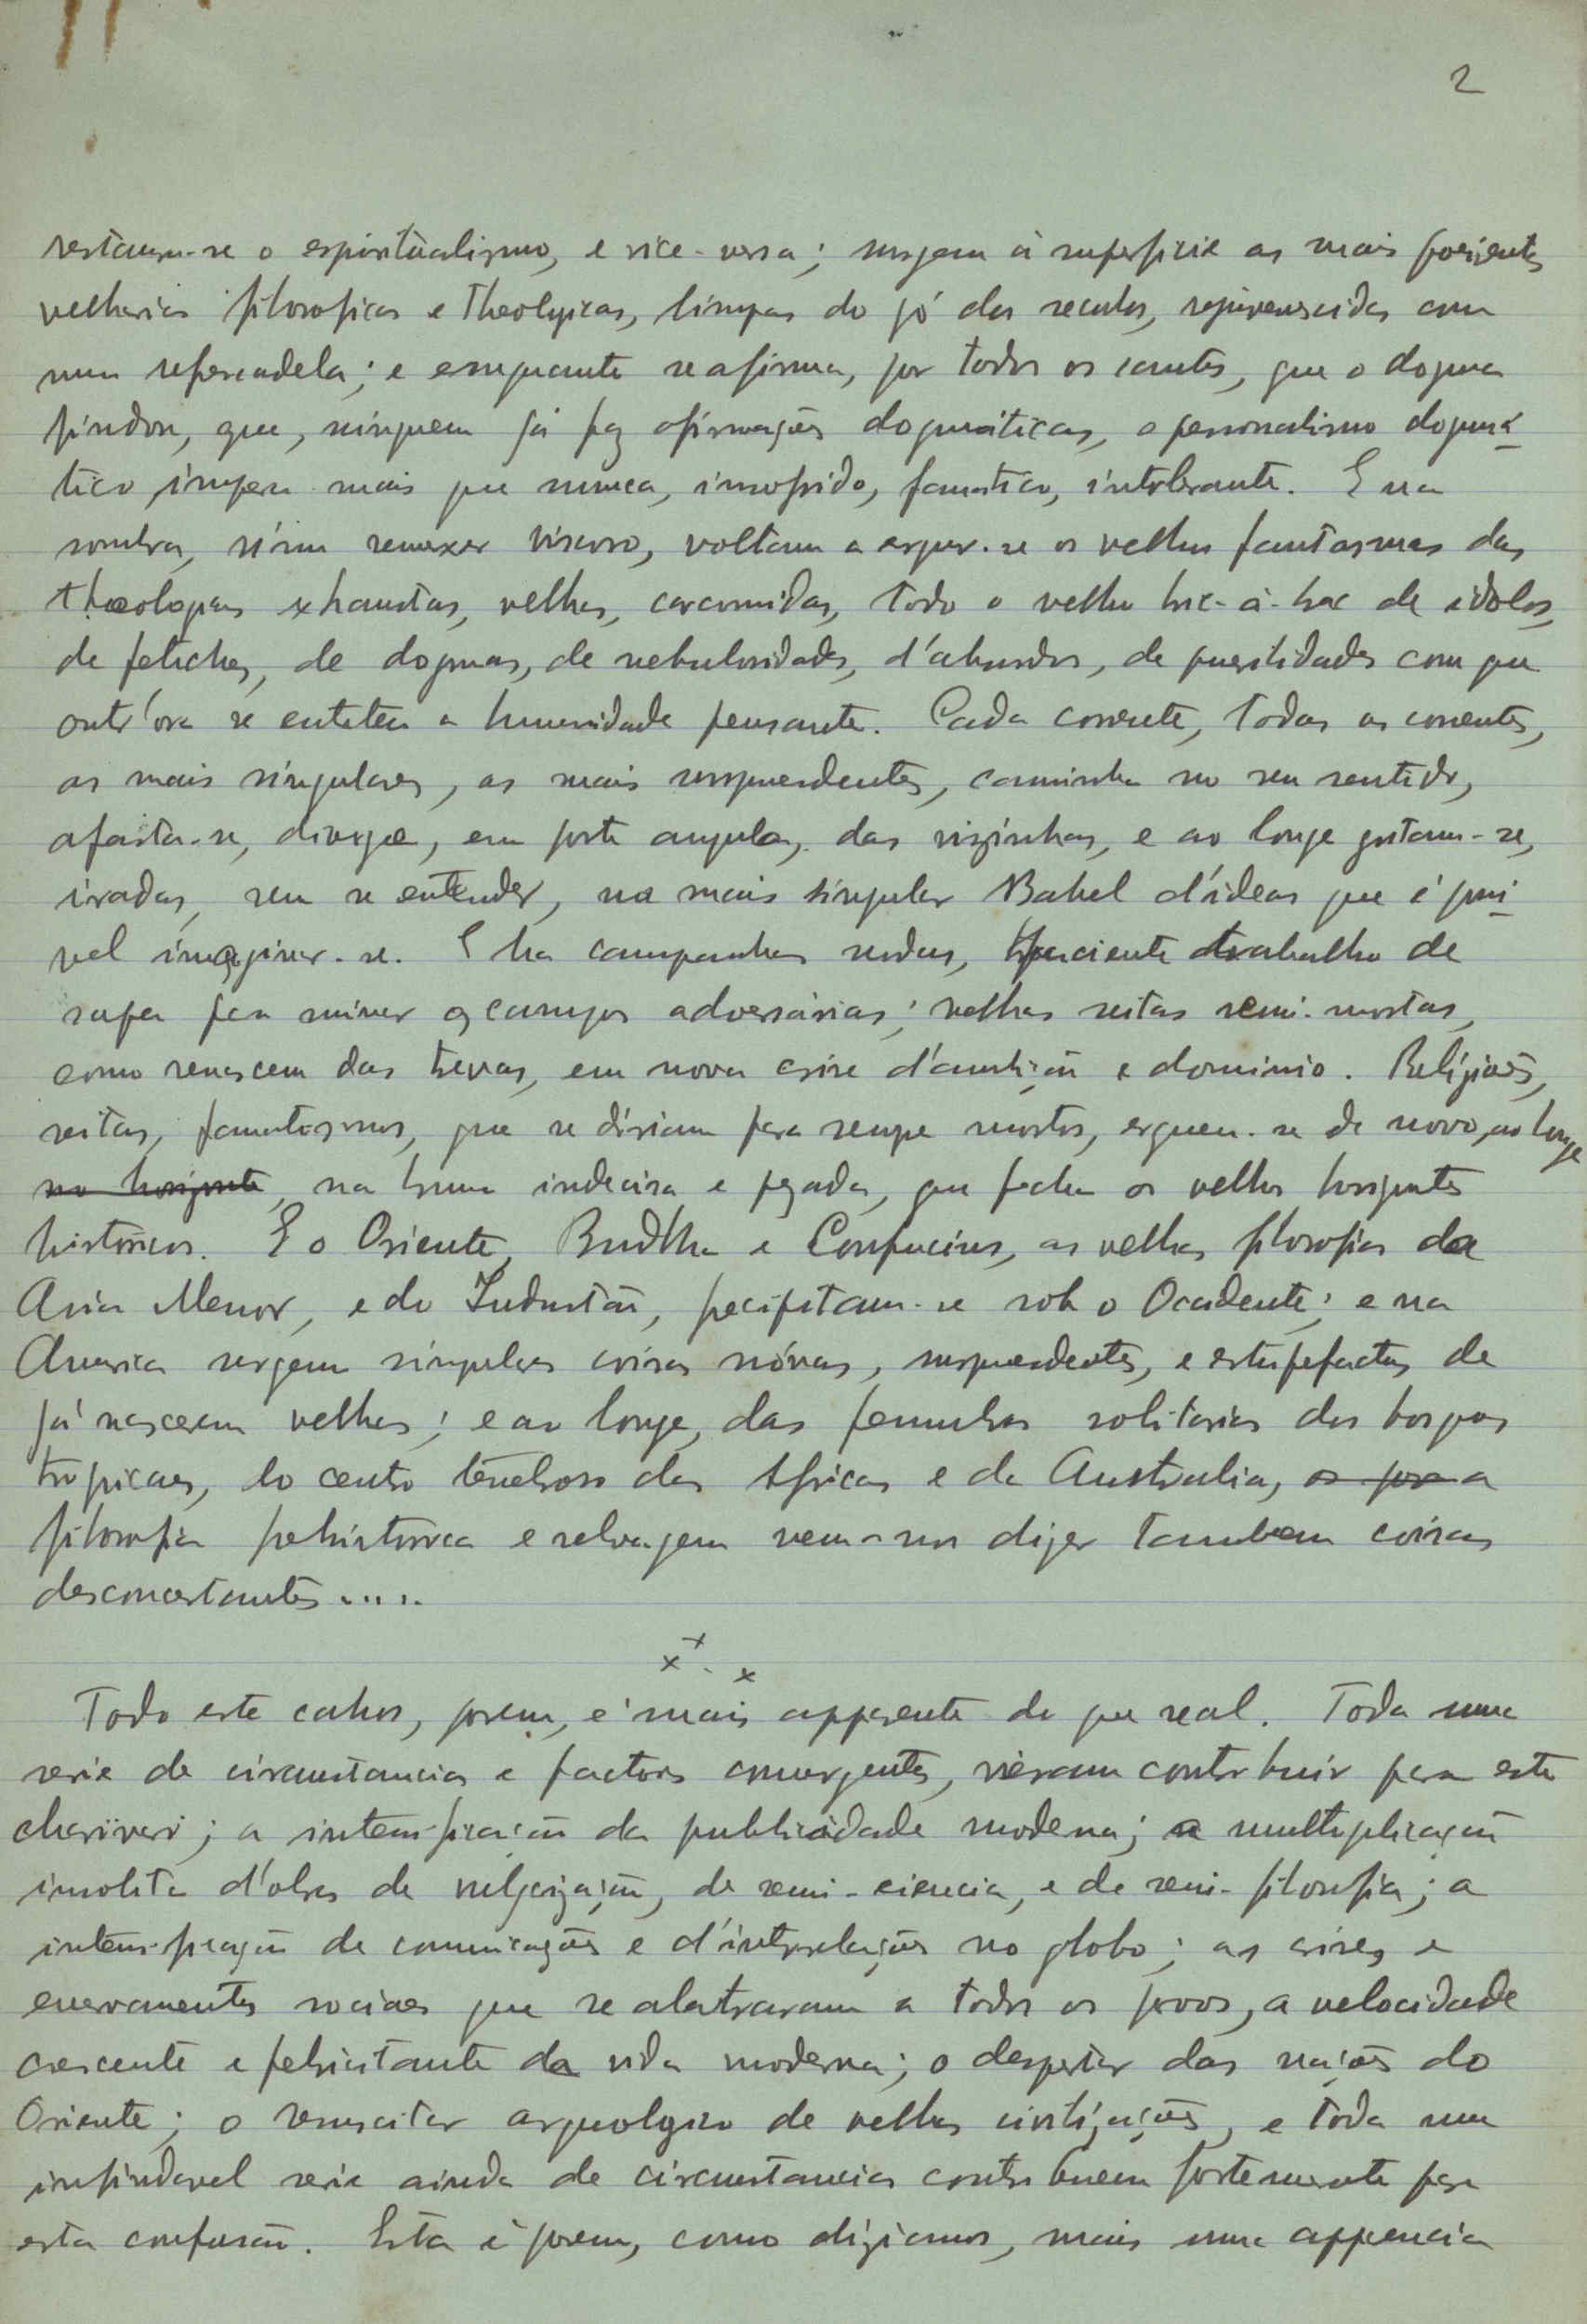 2
restaura-se o espiritualismo, e vice-versa; surgem á superficie as mais poeirentas
velharias filosoficas e theologicas, limpas do pó dos seculos, rejuvenescidas com
uma refrescadela; e emquanto se afirma, por todos os cantos, que o dogma
findou, que, ninguem já faz afirmações dogmáticas, o personalismo dogmá-
tico impera mais que nunca, insofrido, fanatico, intolerante. E na
sombra, n'um remexer viscoso, voltam a erguer-se os velhos fantasmas das
theologias exhaustas, velhas, carcomidas, todo o velho bric-à-brac de idolos,
de fetiches, de dogmas, de nebulosidades, d'absurdos, de puerilidades com que
outr'ora se entretem a humanidade pensante. Cada corrente, todas as correntes,
as mais singulares, as mais surprendentes, caminha no seu sentido,
afasta-se, diverge, em forte angulo, das vizinhas, e ao longe gritam-se,
iradas, sem se entender, na mais singular Babel d'ideas que é possi-
vel imaginar-se. E ha campanhas surdas, paciente trabalho de
sapa para minar os campos adversarios; velhas seitas semi-mortas,
como renascem das trevas, em nova crise d'ambição e dominio. Religiões,
seitas, fanatismos, que se diriam para sempre mortos, erguem-se de novo, ao longe
no horizonte, na bruma indecisa e pezada, que fecha os velhos horizontes
historicos. E o Oriente, Budha e Confucius, as velhas filosofias da
Asia Menor, e do Industão, precipitam-se sob o Occidente; e na
America surgem singulares coisas nóvas, surprendentes, e estupefactas de
já nascerem velhas; e ao longe, das penumbras solitarias dos bosques
tropicaes, do centro tenebroso das Africas e da Australia, a
filosofia prehistorica e selvagem vem-nos dizer tambem coisas
desconcertantes.....
x x x
Todo este cahos, porem, é mais apparente do que real. Toda uma
serie de circunstancias e factores convergentes, vieram contribuir para este
charivari; a intensificação da publicidade moderna; a multiplicação
insolita d'obras de vulgarização, de semi-ciencia, e de semi-filosofia; a
intensificação de comunicações e d'interrelações no globo; as crises e
enervamentos sociaes que se alastraram a todos os povos, a velocidade
crescente e febricitante da vida moderna; o despertar das nações do
Oriente; o resuscitar arqueologico de velhas civilizações, e toda uma
infindavel serie ainda de circunstancias contribuem fortemente para
esta confusão. Esta é porem, como diziamos, mais uma apparencia